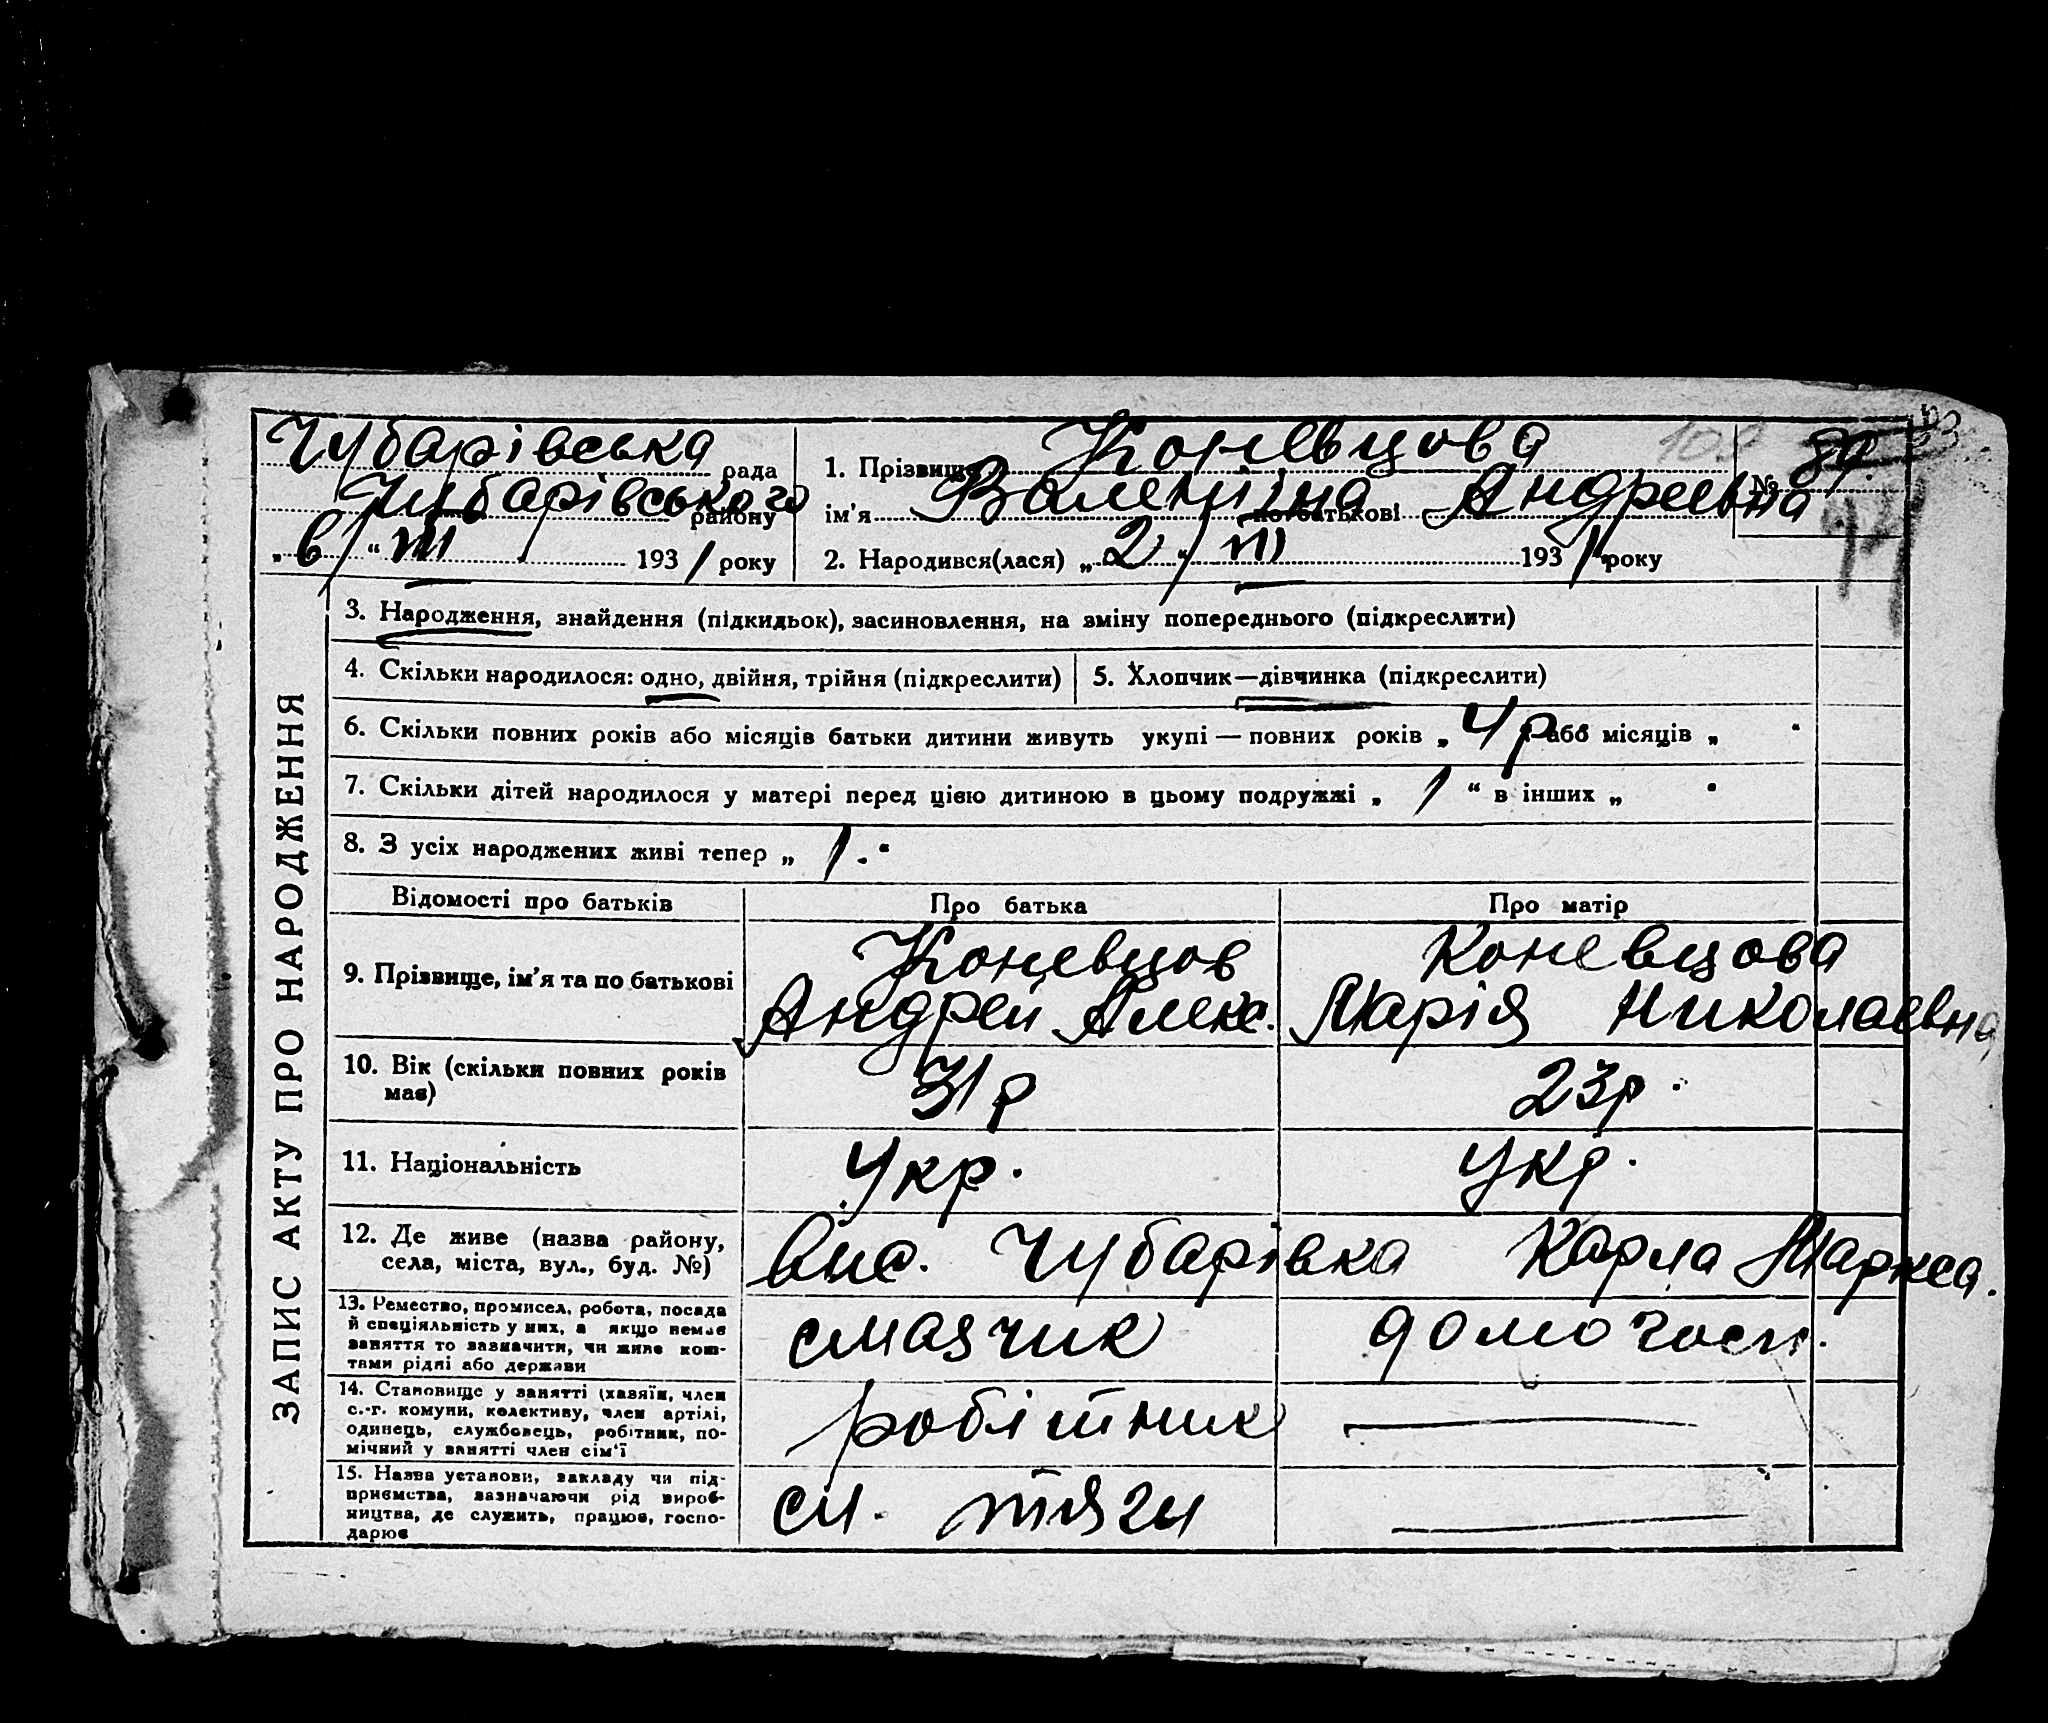 Чубарівська рада
Чубарівського району
„ 6 / “ III 1931 року
1. Прізвище Коневцова
ім'я Валентина по батькові Андреевна
№ 89.
2. Народився(лася) „ 2 / “ III 1931 року
ЗАПИС АКТУ ПРО НАРОДЖЕННЯ
3. Народження, знайдення (підкидьок), засиновлення, на зміну попереднього (підкреслити)
4. Скільки народилося: одно, двійня, трійня (підкреслити)
5. Хлопчик—дівчинка (підкреслити)
6. Скільки повних років або місяців батьки дитини живуть укупі — повних років „ 4 р або місяців „ “
7. Скільки дітей народилося у матері перед цією дитиною в цьому подружжі „ 1 “ в інших „ “
8. З усіх народжених живі тепер „ 1. “
Відомості про батьків Про батька Про матір
9. Прізвище, ім'я та по батькові
Коневцов
Андрей Алекс.
Коневцова
Марія Николаевна
10. Вік (скільки повних років
має)
31 р
23р.
11. Національність Укр. Укр.
12. Де живе (назва району,
села, міста, вул., буд. №)
вис. Чубарівка Карла Маркса.
13. Ремество, промисел, робота, посада
й спеціяльність у них, а якщо немає
заняття то зазначити, чи живе кош-
тами рідні або держави
смазчик
домогосп.
14. Становище у занятті (хазяїн, член
с.-г. комуни, колективу, член артілі,
одинець, службовець, робітник, по-
мічний у занятті член сім'ї
робітник
15. Назва установи, закладу чи під-
приємства, зазначаючи рід вироб-
ництва, де служить, працює, госпо-
дарює
сл. тяги